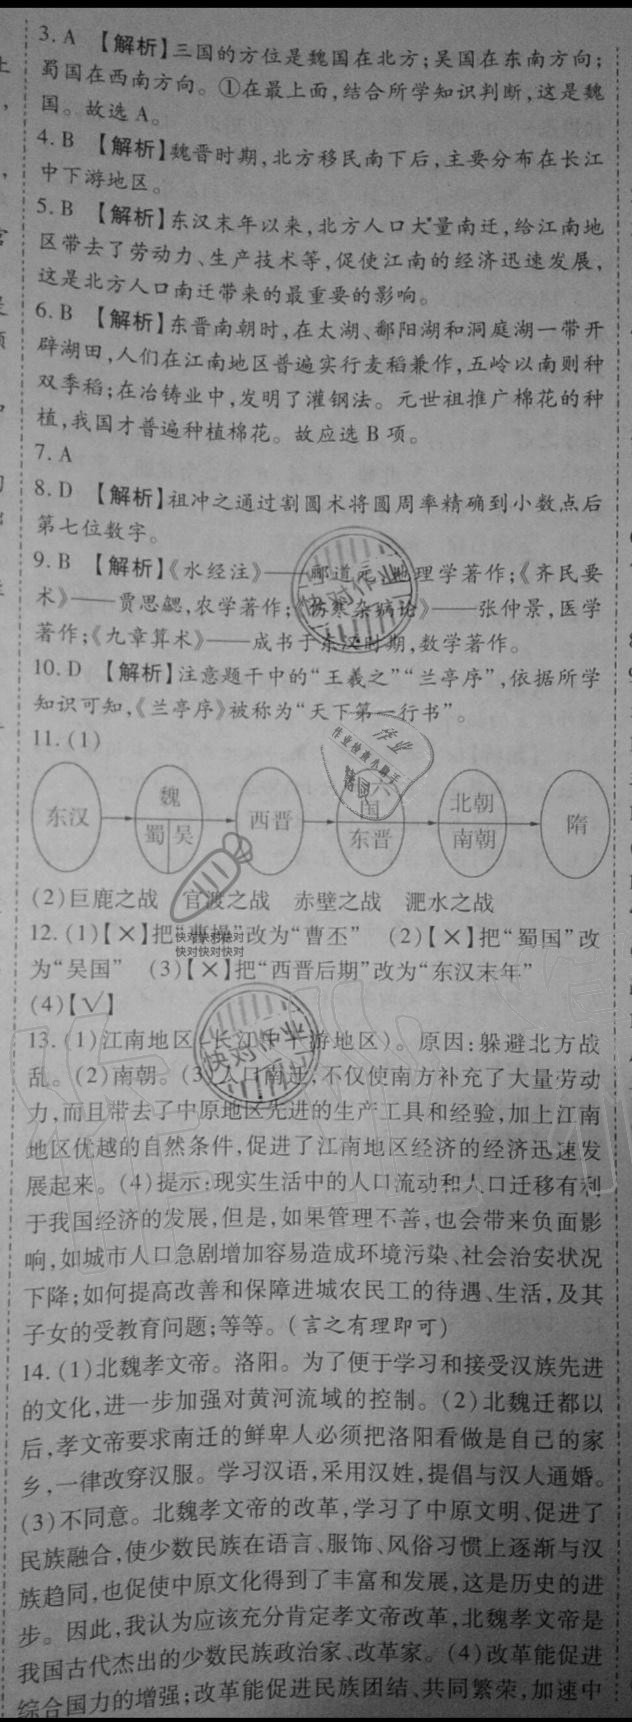 3. A 【解析】三国的方位是魏国在北方;吴国在东南方向;
蜀国在西南方向。①在最上面,结合所学知识判断,这是魏
国。故选 A。
4. B 【解析】魏晋时期,北方移民南下后,主要分布在长江
中下游地区。
5. B 【解析】东汉末年以来,北方人口大量南迁,给江南地
区带去了劳动力、生产技术等,促使江南的经济迅速发展,
这是北方人口南迁带来的最重要的影响。
6. B 【解析】东晋南朝时,在太湖、鄱阳湖和洞庭湖一带开
辟湖田,人们在江南地区普遍实行麦稻兼作,五岭以南则种
双季稻;在冶铸业中,发明了灌钢法。元世祖推广棉花的种
植,我国才普遍种植棉花。故应选 B 项。
7. A
8. D 【解析】祖冲之通过割圆术将圆周率精确到小数点后
第七位数字。
9. B 【解析】《水经注》——郦道元,地理学著作;《齐民要
术》——贾思勰,农学著作;《伤寒杂病论》——张仲景,医学
著作;《九章算术》——成书于东汉时期,数学著作。
10. D 【解析】注意题干中的“王羲之”“兰亭序”,依据所学
知识可知,《兰亭序》被称为“天下第一行书”。
11. (1)
东汉 魏 蜀 吴 西晋 十六国 东晋 北朝 南朝 隋
(2)巨鹿之战 官渡之战 赤壁之战 淝水之战
12. (1)【×】把“曹操”改为“曹丕” (2)【×】把“蜀国”改
为“吴国” (3)【×】把“西晋后期”改为“东汉末年”
(4)【√】
13. (1)江南地区(长江中下游地区)。原因:躲避北方战
乱。(2)南朝。(3)人口南迁,不仅使南方补充了大量劳动
力,而且带去了中原地区先进的生产工具和经验,加上江南
地区优越的自然条件,促进了江南地区经济的经济迅速发
展起来。(4)提示:现实生活中的人口流动和人口迁移有利
于我国经济的发展,但是,如果管理不善,也会带来负面影
响,如城市人口急剧增加容易造成环境污染、社会治安状况
下降;如何提高改善和保障进城农民工的待遇、生活,及其
子女的受教育问题;等等。(言之有理即可)
14. (1)北魏孝文帝。洛阳。为了便于学习和接受汉族先进
的文化,进一步加强对黄河流域的控制。(2)北魏迁都以
后,孝文帝要求南迁的鲜卑人必须把洛阳看做是自己的家
乡,一律改穿汉服。学习汉语,采用汉姓,提倡与汉人通婚。
(3)不同意。北魏孝文帝的改革,学习了中原文明、促进了
民族融合,使少数民族在语言、服饰、风俗习惯上逐渐与汉
族趋同,也促使中原文化得到了丰富和发展,这是历史的进
步。因此,我认为应该充分肯定孝文帝改革,北魏孝文帝是
我国古代杰出的少数民族政治家、改革家。(4)改革能促进
综合国力的增强;改革能促进民族团结、共同繁荣,加速中
快对作业
作业
作业检查小助手
快对快对快对
快对快对快对
快对作业